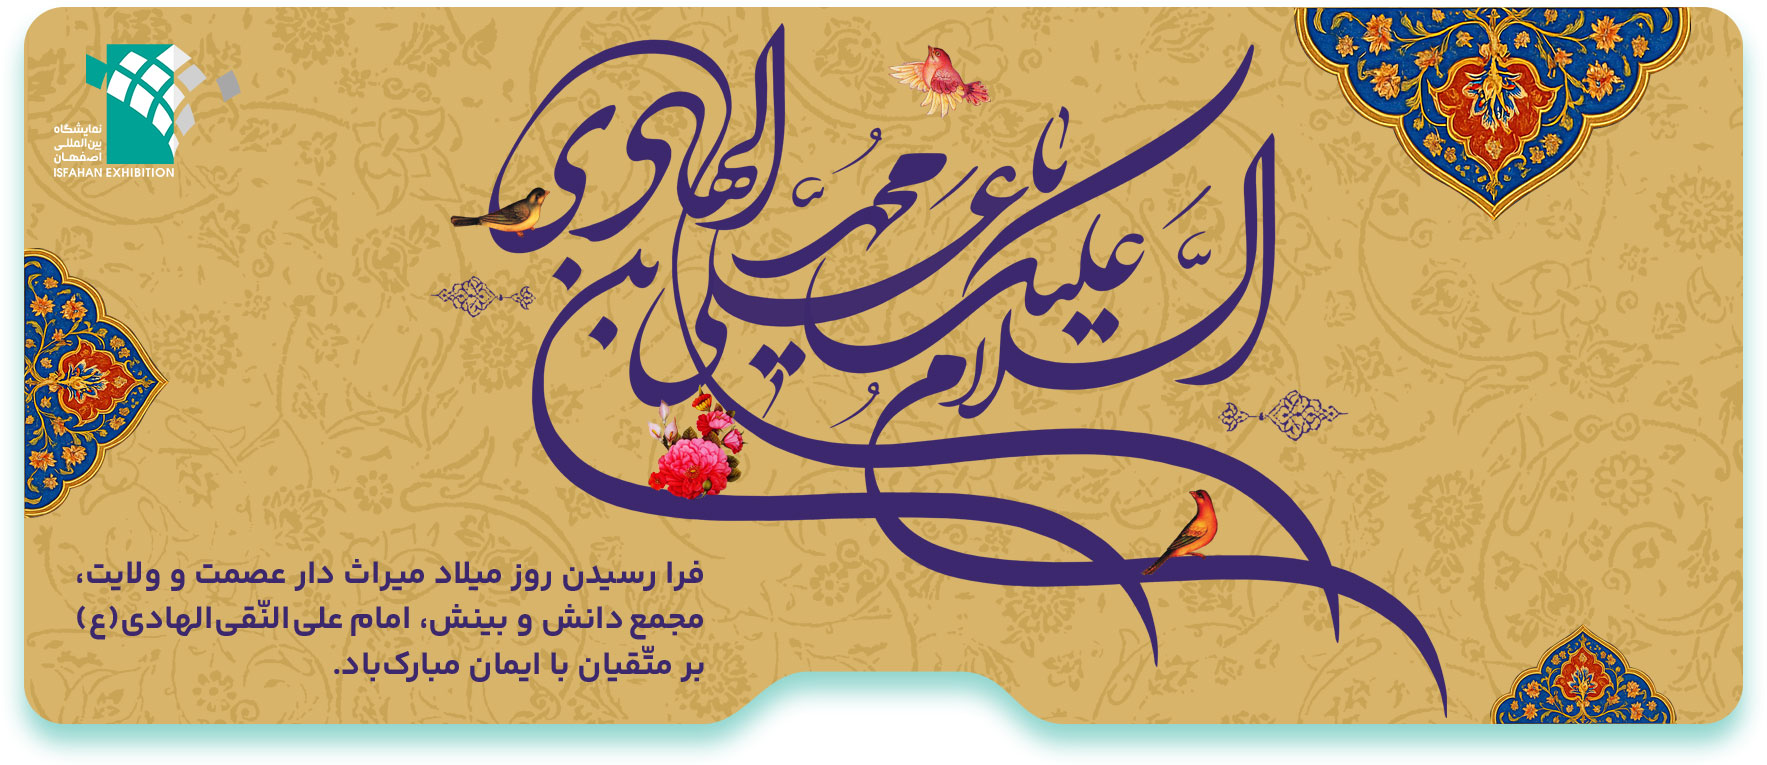 السلام علیک یا علی بن محمد الهادی
نمایشگاه
بین‌المللی
اصفهان
ISFAHAN EXHIBITION
فرا رسیدن روز میلاد میراث دار عصمت و ولایت،
مجمع دانش و بینش، امام علی‌النّقی‌الهادی(ع)
بر متّقیان با ایمان مبارک‌باد.